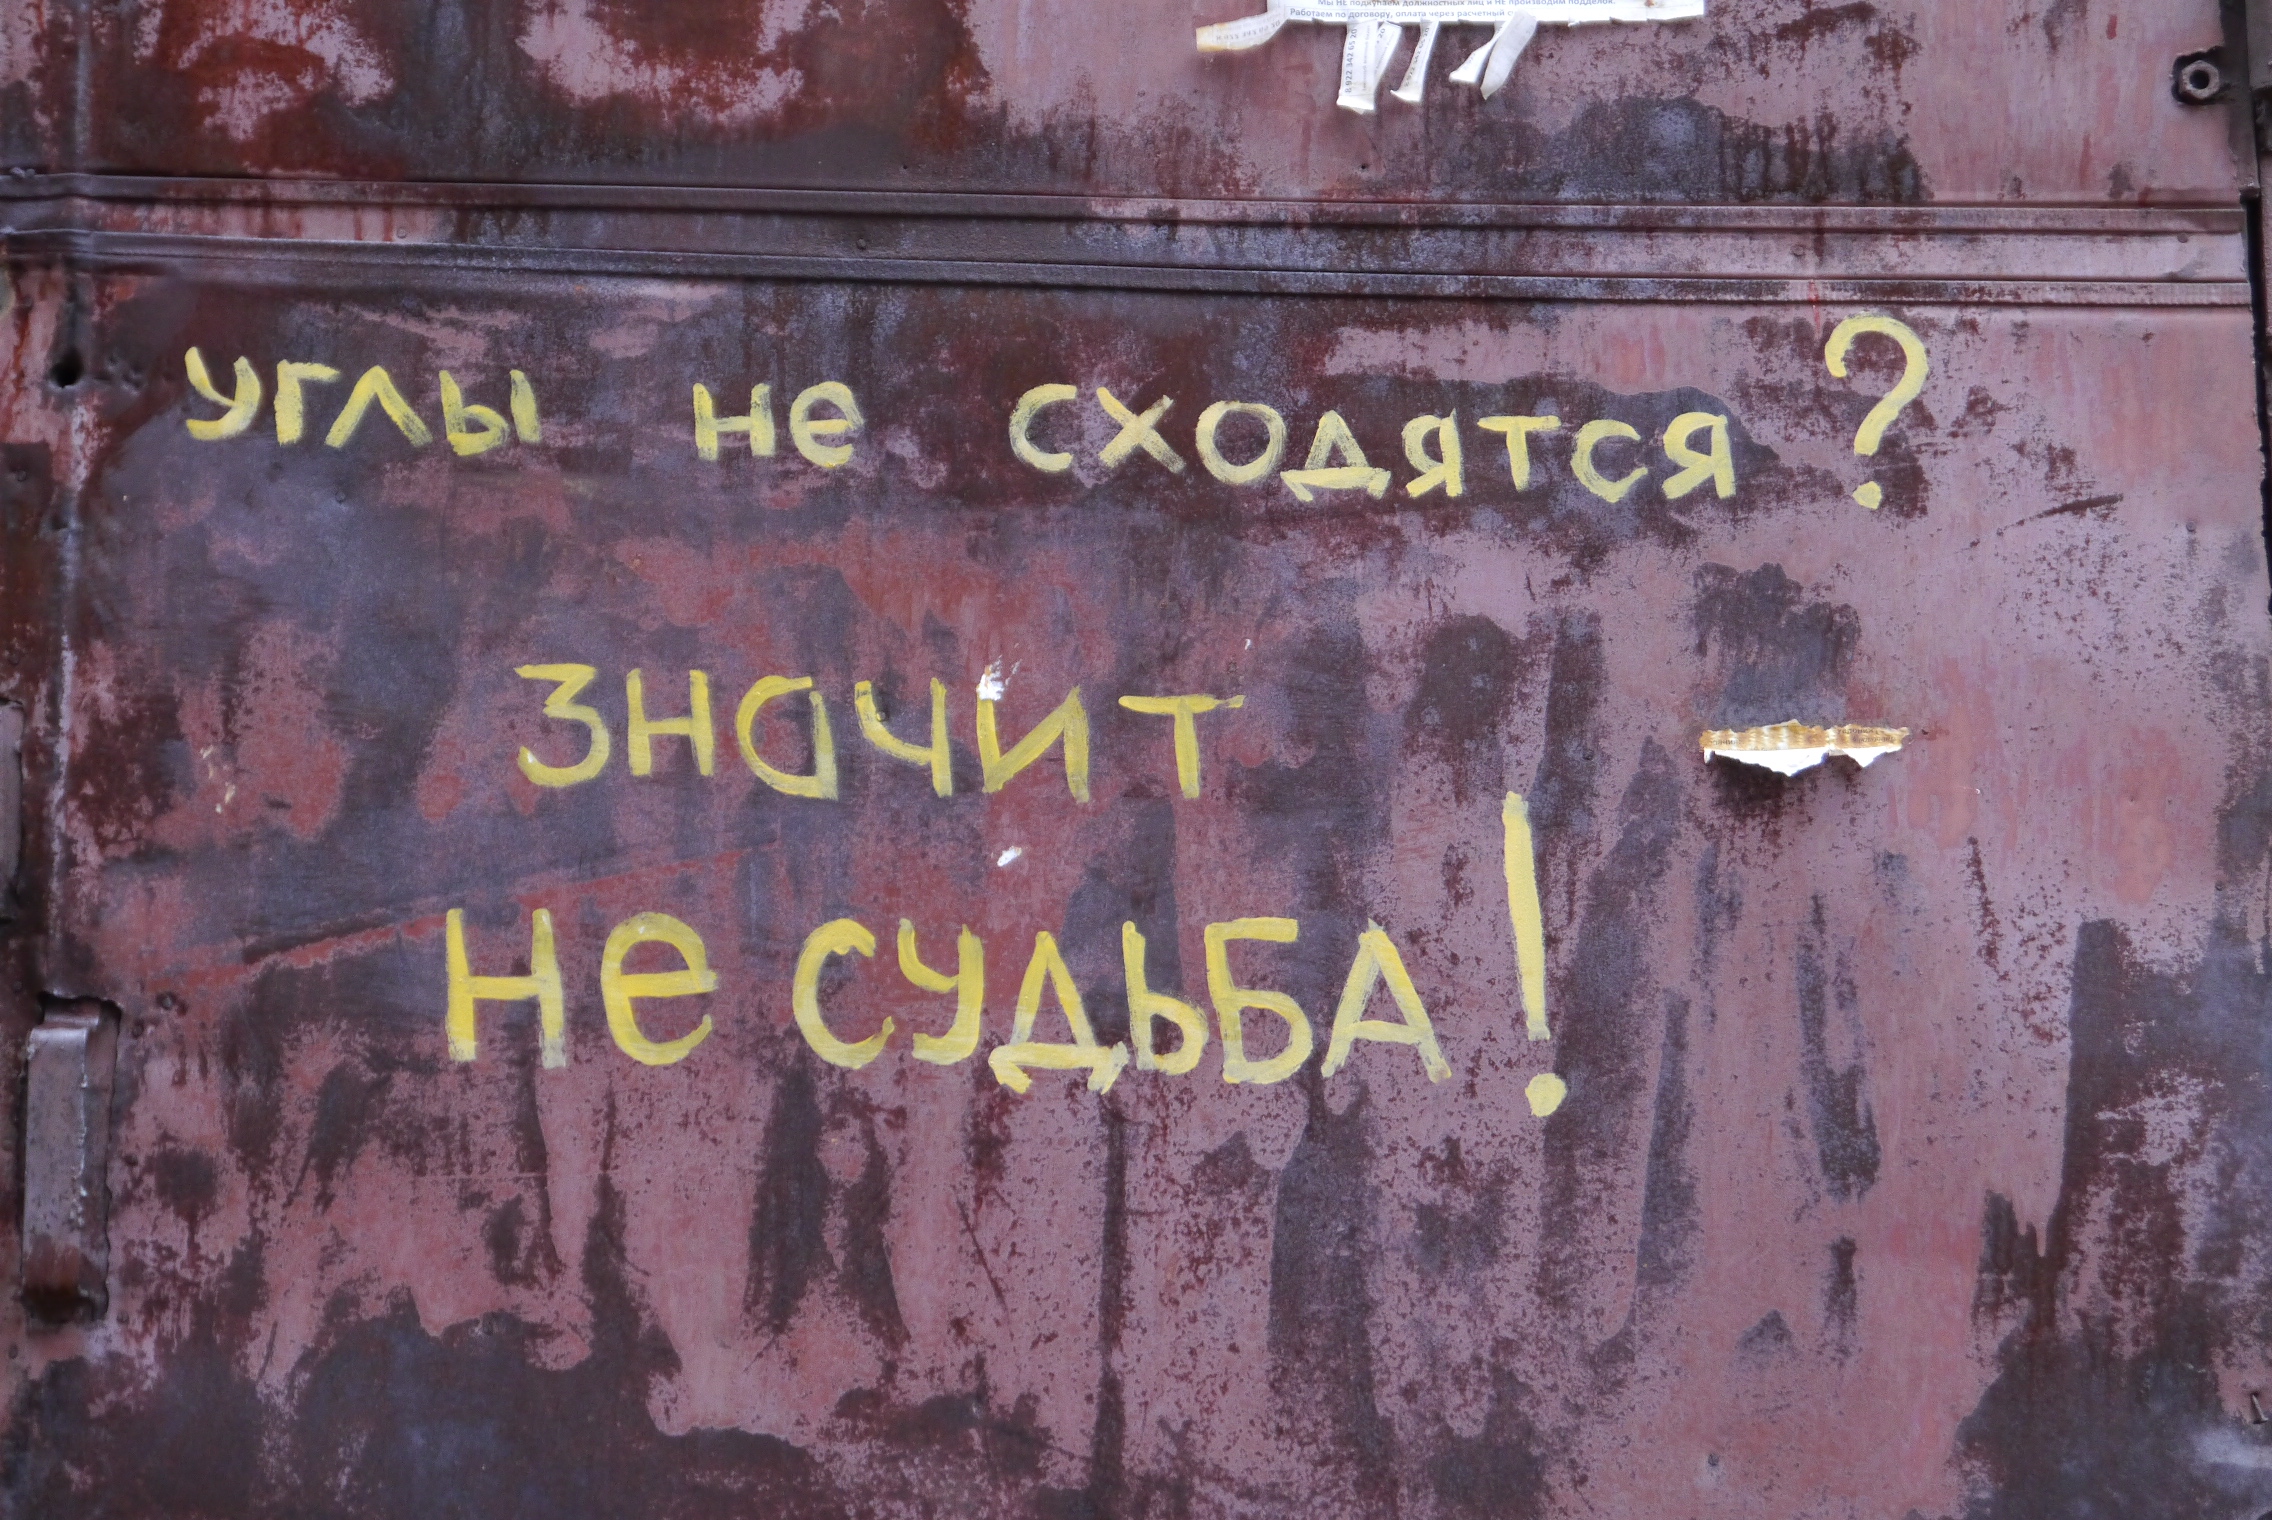 Мы НЕ подкупаем должностных лиц и НЕ производим подделок.
Работаем по договору, оплата через расчетный
8 922 342 65 20
углы не сходятся?
значит
не судьба!